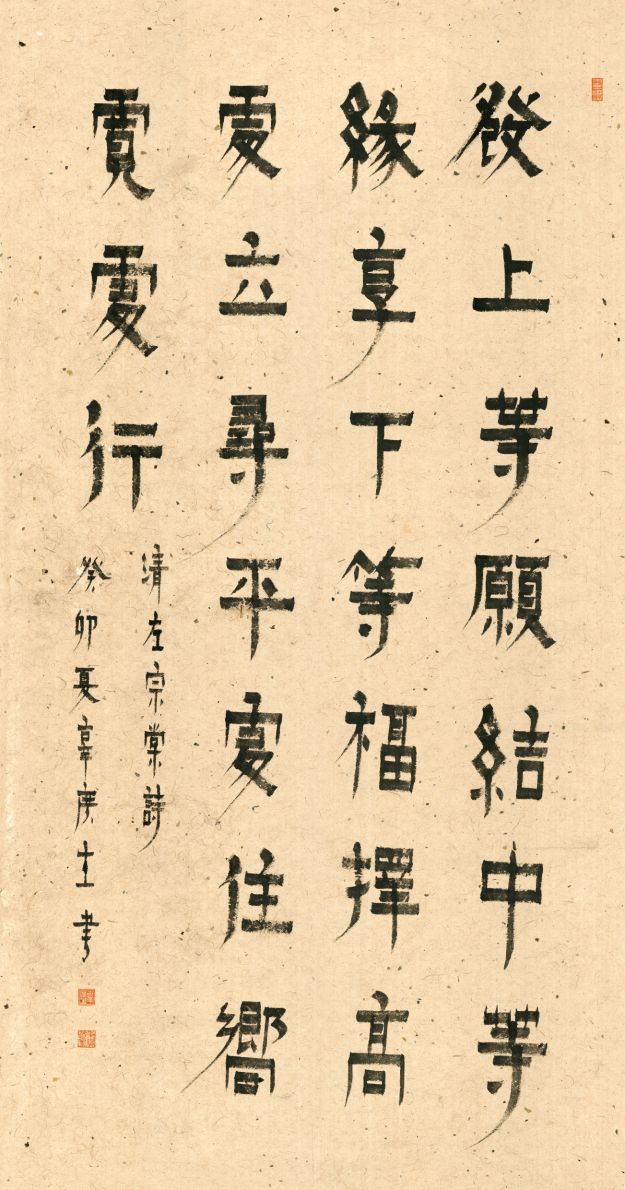 發上等願結中等
緣享下等福擇高
處立尋平處住嚮
寬處行
清左宗棠詩
癸卯夏書